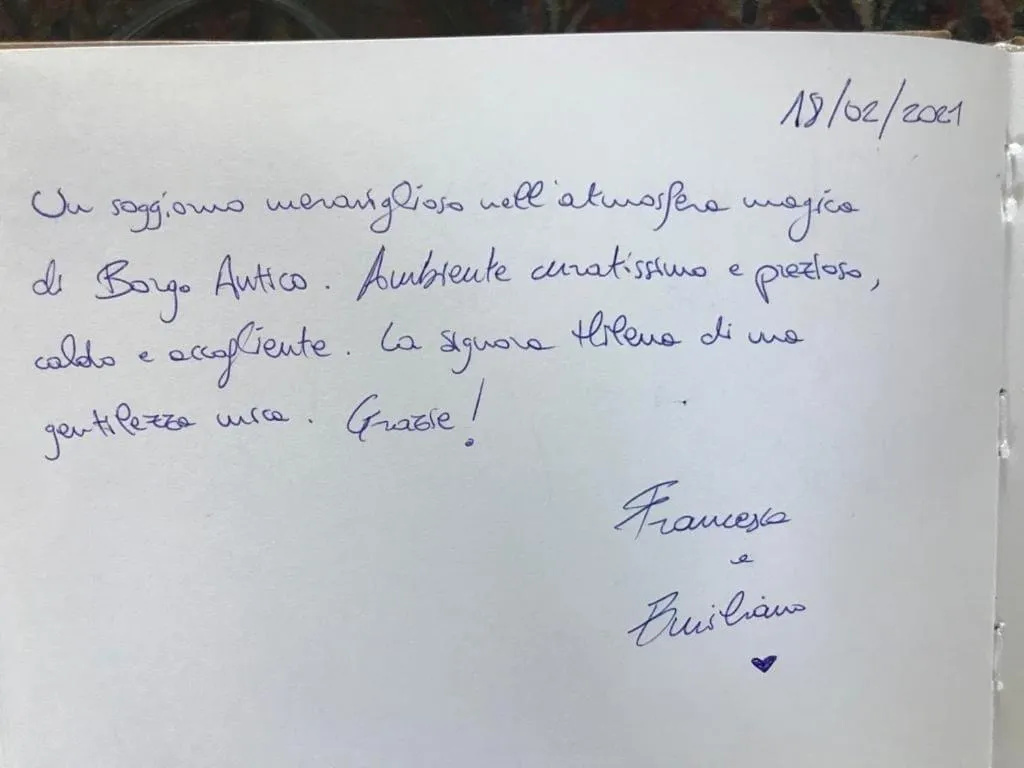 18/02/2021
Un soggiorno meraviglioso nell'atmosfera magica
di Borgo Antico. Ambiente curatissimo e prezioso,
caldo e accogliente. La signora Milena di una
gentilezza unica. Grazie!
Francesca
e
Emiliano